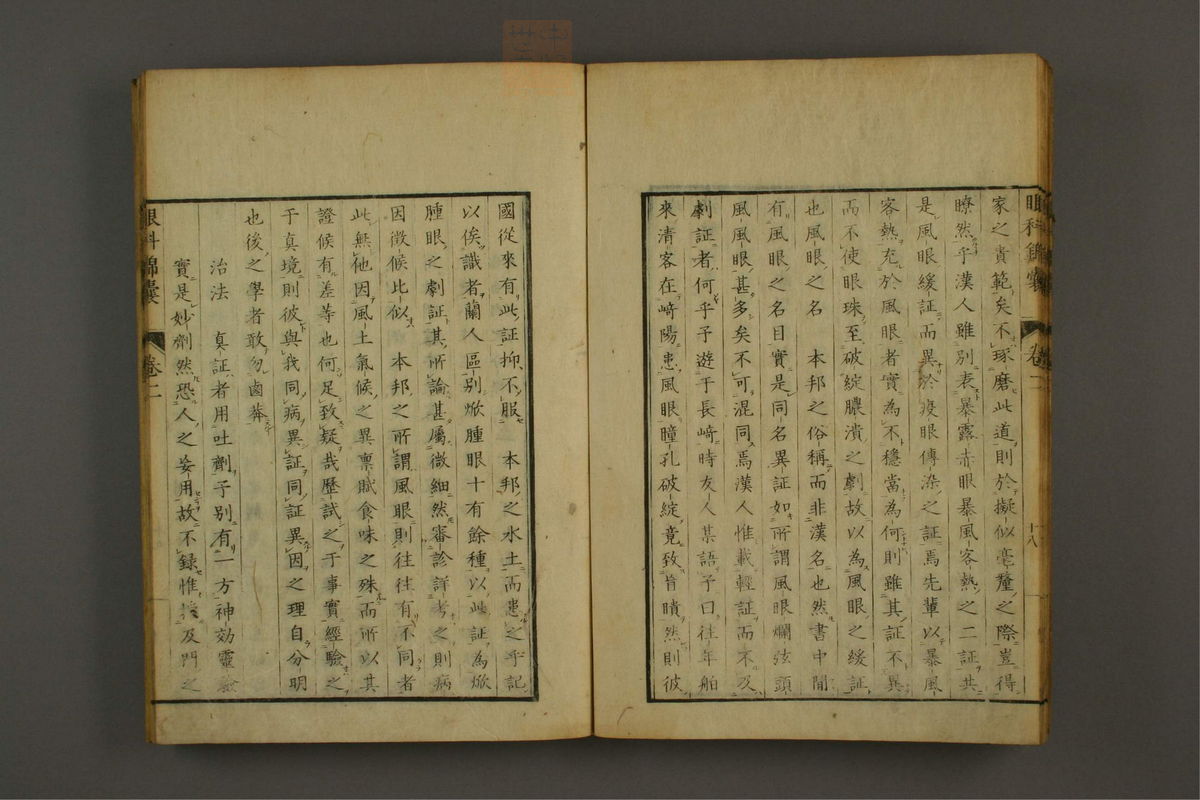 眼科錦囊 卷二 十八
家之責範矣不琢磨此道則於擬似毫釐之際豈得
瞭然乎漢人雖別表暴露赤眼暴風客熱之二証共
是風眼緩証而異於疫眼傳染之証焉先輩以暴風
客熱充於風眼者實為不穩當為何則雖其証不異
而不使眼珠至破綻膿潰之劇故以為風眼之緩証
也風眼之名 本邦之俗稱而非漢名也然書中間
有風眼之名目實是同名異証如所謂風眼爛弦頭
風風眼甚多矣不可混同焉漢人惟載輕証而不及
劇証者何乎予遊于長崎時友人某語予曰往年舶
來清客在崎陽患風眼瞳孔破綻竟致盲瞎然則彼
國從來有此証抑不服 本邦之水土而患之乎記
以俟識者蘭人區別焮腫眼十有餘種以此証為焮
腫眼之劇証其所論甚屬微細然審診詳考之則病
因徵候比似 本邦之所謂風眼則往往有不同者
此無他因風土氣候之異稟賦食味之殊而所以其
證候有差等也何足致疑哉歷試之于事實經驗之
于真境則彼與我同病異証同証異因之理自分明
也後之學者敢勿鹵莽
治法 真証者用吐劑予別有一方神効靈驗
實是妙劑然恐人之妄用故不錄惟 及門之
眼科錦囊 卷二